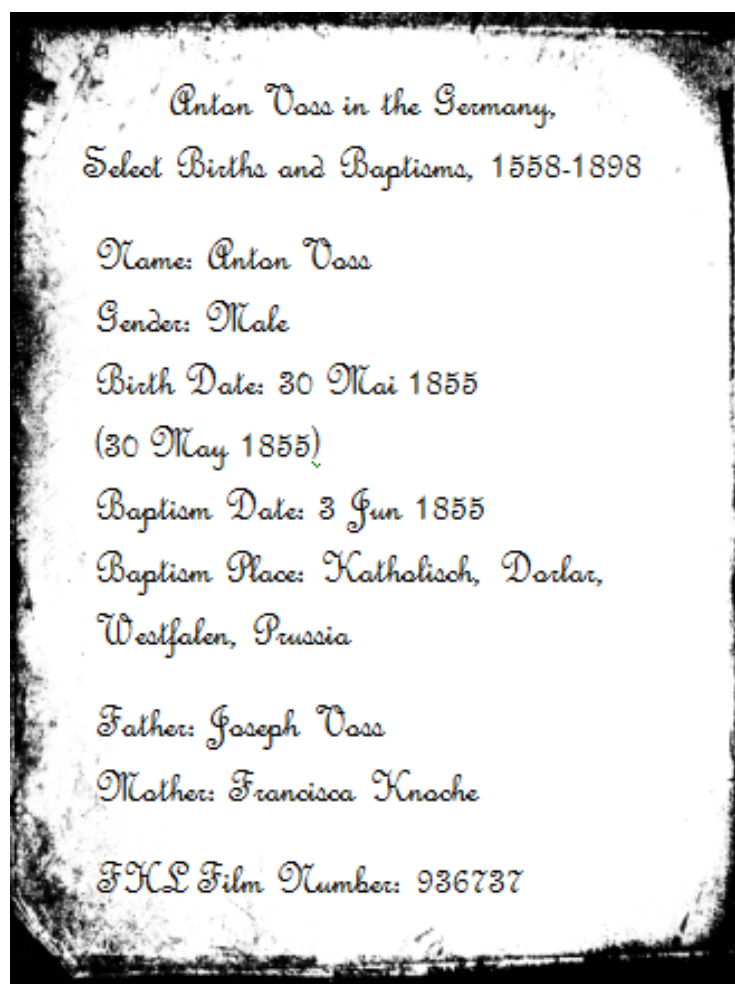 Anton Voss in the Germany,
Select Births and Baptisms, 1558-1898
Name: Anton Voss
Gender: Male
Birth Date: 30 Mai 1855
(30 May 1855)
Baptism Date: 3 Jun 1855
Baptism Place: Katholisch, Dorlar,
Westfalen, Prussia
Father: Joseph Voss
Mother: Francisca Knoche
FHL Film Number: 936737